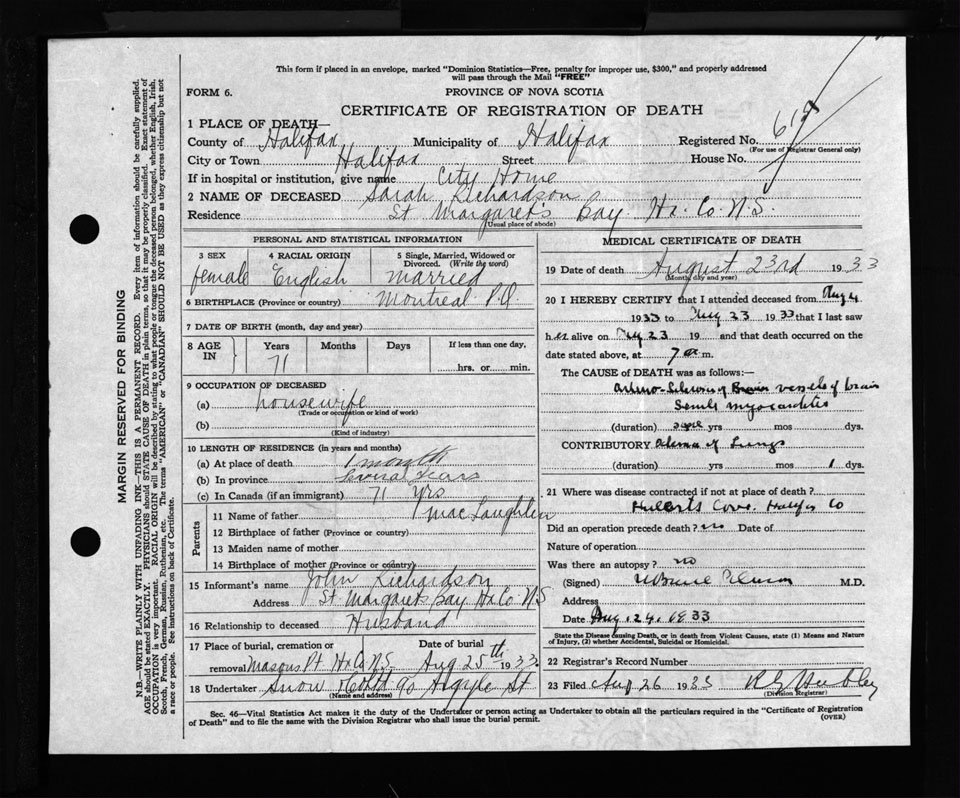 This form if placed in an envelope, marked "Dominion Statistics—Free, penalty for improper use, $300," and properly addressed
will pass through the Mail "FREE"
FORM 6.
PROVINCE OF NOVA SCOTIA
CERTIFICATE OF REGISTRATION OF DEATH
1 PLACE OF DEATH—
County of Halifax Municipality of Halifax Registered No.
(For use of Registrar General only)
City or Town Halifax Street House No.
If in hospital or institution, give name City Home
2 NAME OF DECEASED Sarah Richardson
Residence St Margaret's Bay Hx. Co. N.S.
(Usual place of abode)
PERSONAL AND STATISTICAL INFORMATION
3 SEX 4 RACIAL ORIGIN 5 Single, Married, Widowed or Divorced. (Write the word)
female English married
6 BIRTHPLACE (Province or country) Montreal P.Q.
7 DATE OF BIRTH (month, day and year)
8 AGE IN Years Months Days If less than one day,
71 hrs. or min.
9 OCCUPATION OF DECEASED
(a) housewife
(Trade or occupation or kind of work)
(b)
(Kind of industry)
10 LENGTH OF RESIDENCE (in years and months)
(a) At place of death 1 month
(b) In province Several Years
(c) In Canada (if an immigrant) 71 yrs
Parents
11 Name of father MacLaughlin
12 Birthplace of father (Province or country)
13 Maiden name of mother
14 Birthplace of mother (Province or country)
15 Informant's name John Richardson
Address St Margarets Bay Hx Co N.S
16 Relationship to deceased Husband
17 Place of burial, cremation or Date of burial
removal Masons Pt. Hx Co N.S. Aug 25th 1933
18 Undertaker Snow 90 Argyle St
(Name and address)
MEDICAL CERTIFICATE OF DEATH
19 Date of death August 23rd 1933
(Month, day and year)
20 I HEREBY CERTIFY that I attended deceased from Aug 4
1933 to Aug 23 1933 that I last saw
her alive on Aug 23 19 and that death occurred on the
date stated above, at 7 a m.
The CAUSE of DEATH was as follows:—
Arterio-Sclerosis of Brain vessels of brain
Senile myocarditis
(duration) yrs mos dys.
CONTRIBUTORY Edema of Lungs
(duration) yrs mos 1 dys.
21 Where was disease contracted if not at place of death?
Huberts Cove. Halifax Co
Did an operation precede death? no Date of
Nature of operation
Was there an autopsy? no
(Signed) M.D.
Address
Date Aug. 24. 1933
State the Disease causing Death, or in death from Violent Causes, state (1) Means and Nature
of Injury, (2) whether Accidental, Suicidal or Homicidal.
22 Registrar's Record Number
23 Filed Aug 26 1933
(Division Registrar)
Sec. 46—Vital Statistics Act makes it the duty of the Undertaker or person acting as Undertaker to obtain all the particulars required in the "Certificate of Registration
of Death" and to file the same with the Division Registrar who shall issue the burial permit.
(OVER)
MARGIN RESERVED FOR BINDING
N.B.—WRITE PLAINLY WITH UNFADING INK—THIS IS A PERMANENT RECORD. Every item of information should be carefully supplied.
AGE should be stated EXACTLY. PHYSICIANS should STATE CAUSE OF DEATH in plain terms, so that it may be properly classified. Exact statement of
OCCUPATION is very important. RACIAL ORIGIN will be described by stating to what people or tongue the deceased person belonged, whether English, Irish,
Scotch, French, German, Russian, Ruthenian, etc. The terms "AMERICAN" or "CANADIAN" SHOULD NOT BE USED as they express citizenship but not
a race or people. See instructions on back of Certificate.